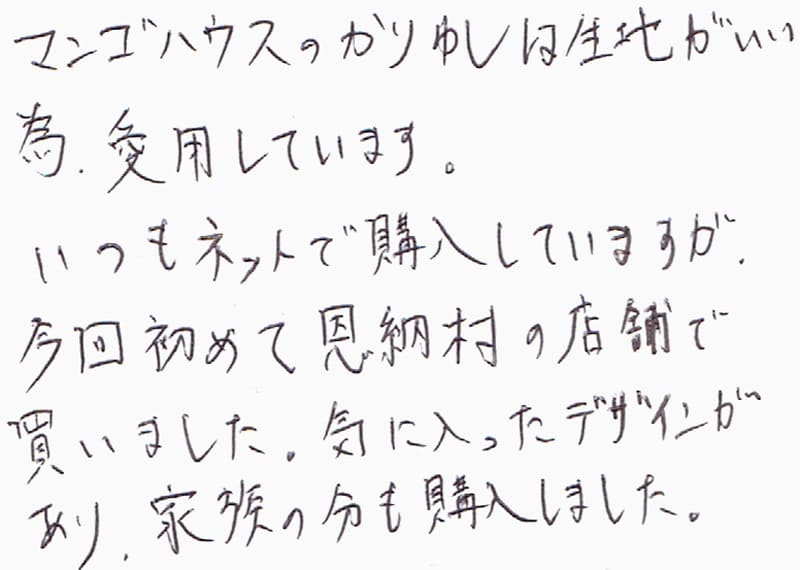 マンゴハウスのかりゆしは生地がいい
為、愛用しています。
いつもネットで購入していますが、
今回初めて恩納村の店舗で
買いました。気に入ったデザインが
あり、家族の分も購入しました。